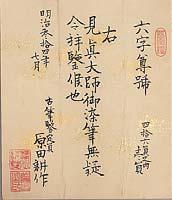 六字尊號
右
見眞大師御染筆無疑
令拜鑒候也
明治参拾四年
七月
古筆鑒定員
原田耕作